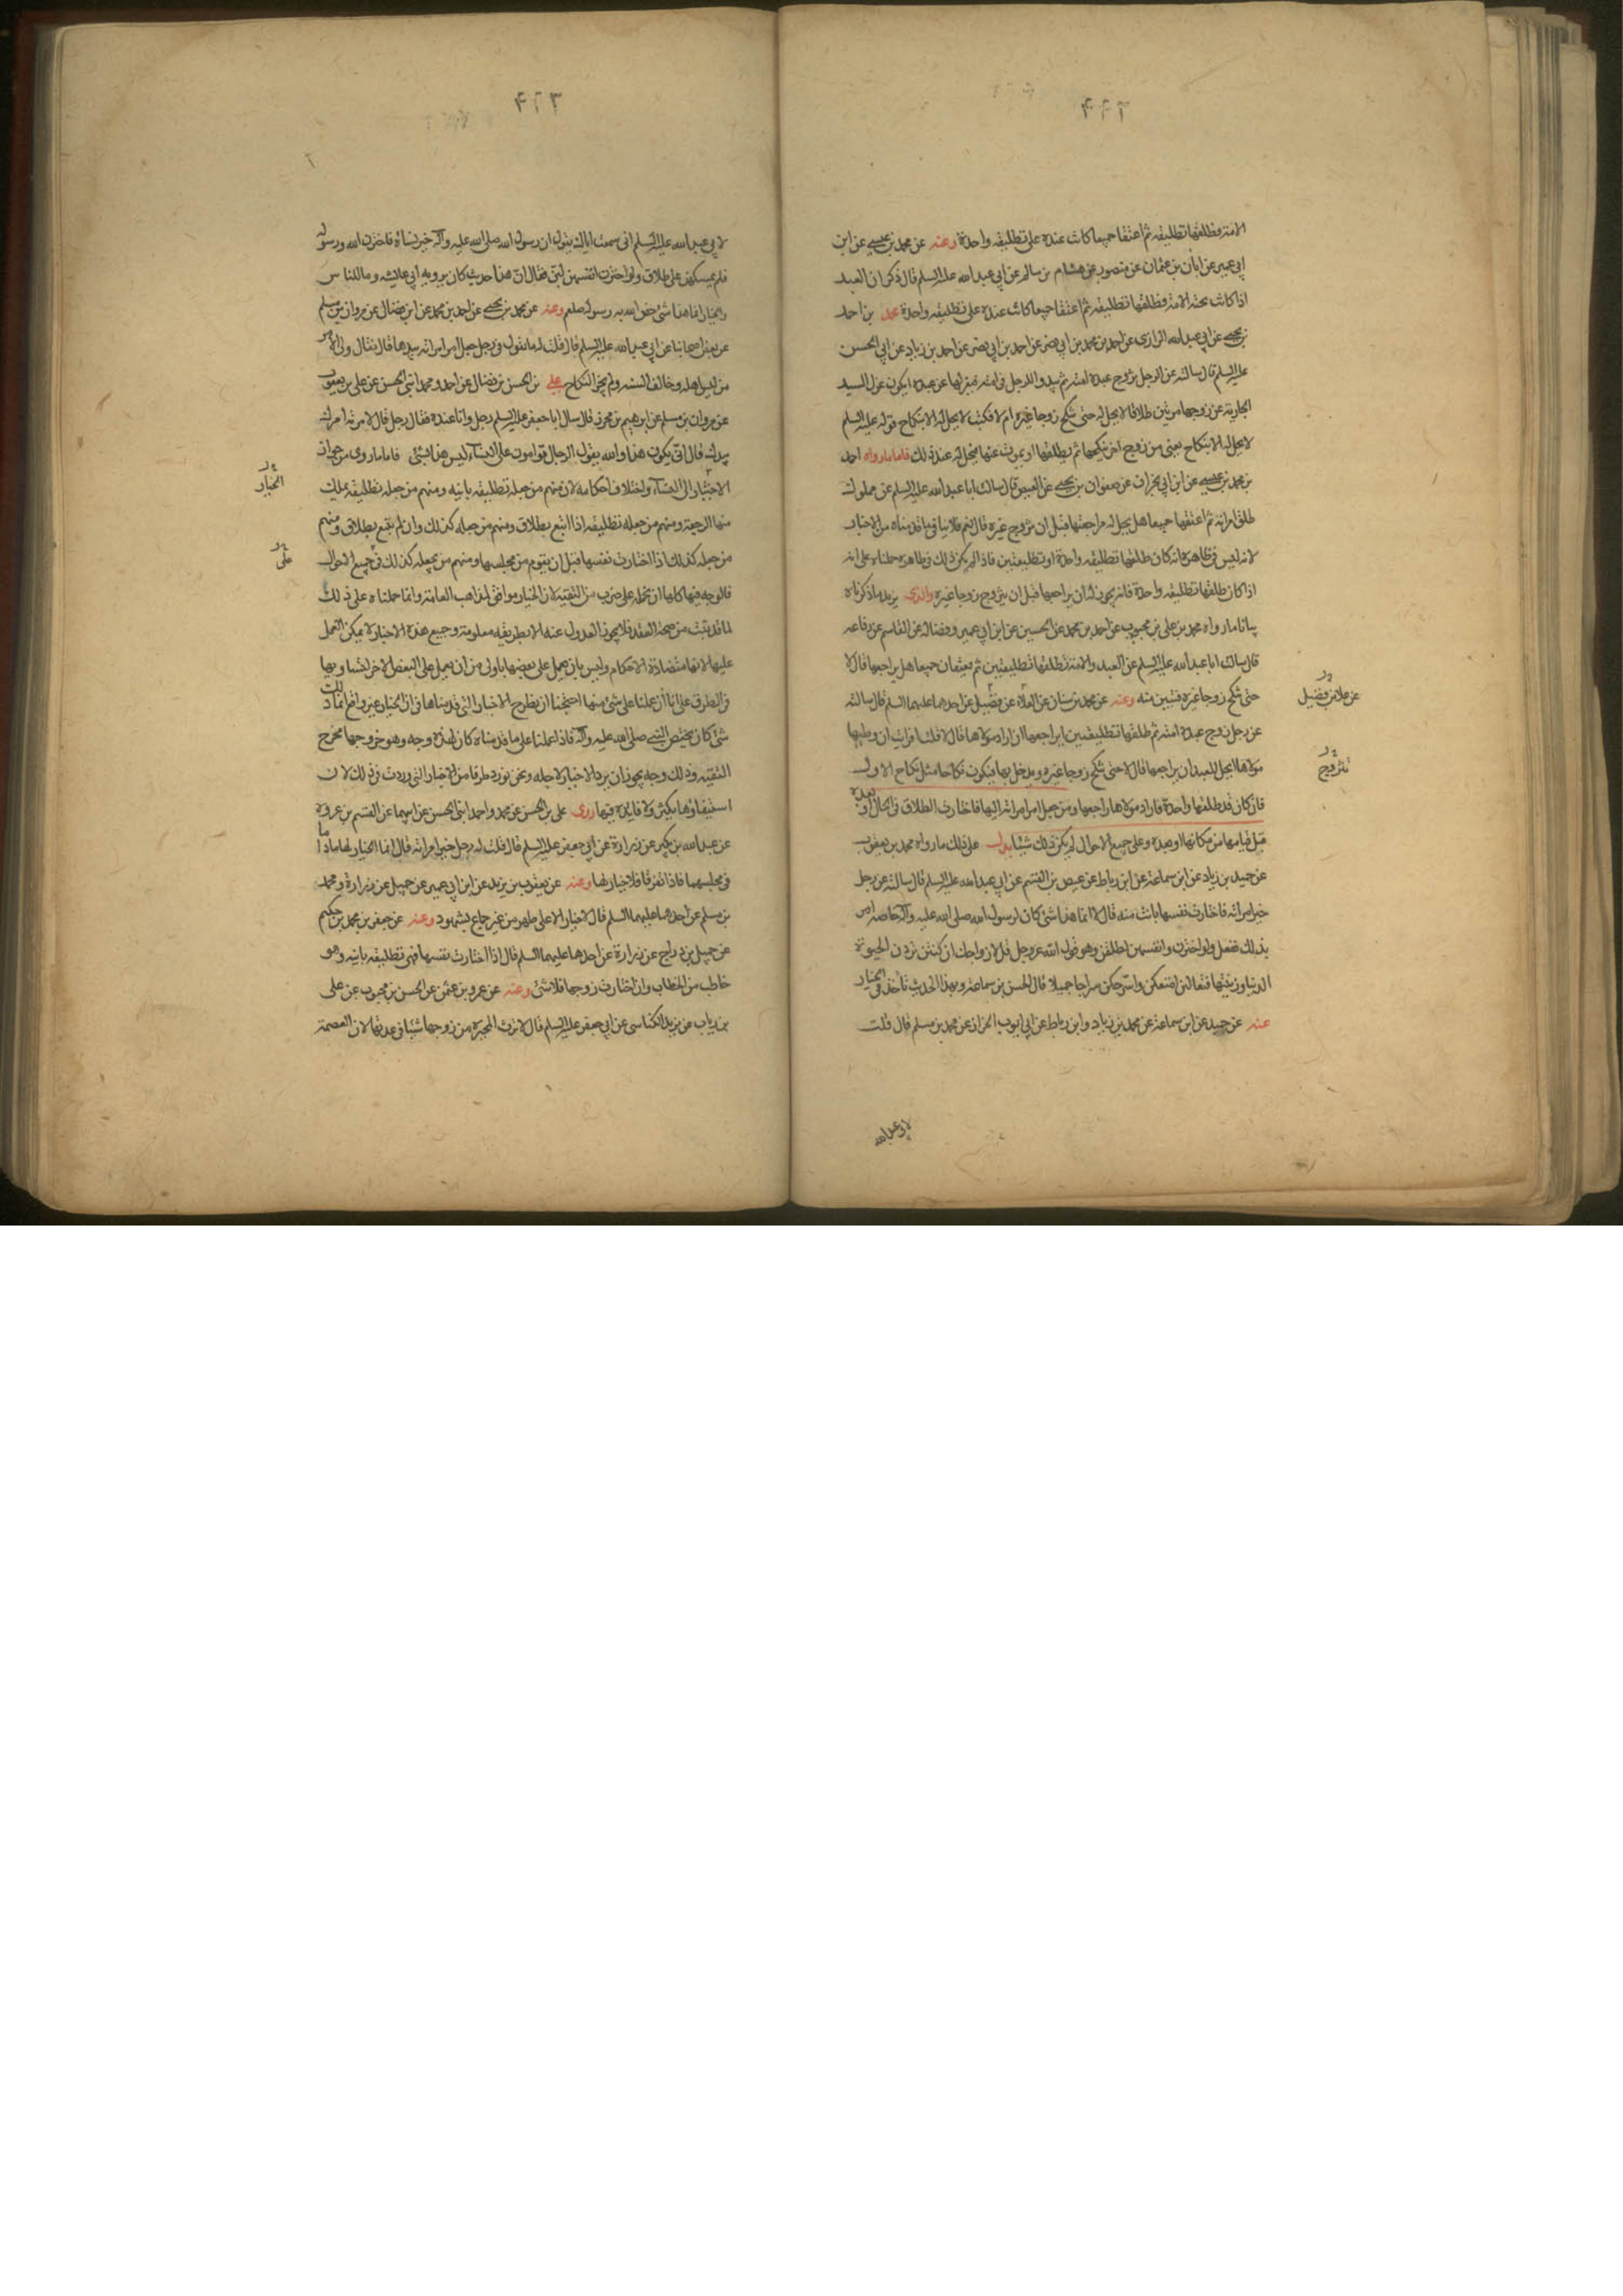 ۴۲۲
الامة فطلقها تطليقة ثم اعتقا جميعا كانت عنده على تطليقة واحدة وعنه عن محمد بن عيسى عن ابن
ابي عمير عن ابان بن عثمان عن منصور عن هشام بن سالم عن ابي عبد الله عليه السلم قال ذكر ان العبد
اذا كانت تحته الامة فطلقها تطليقة ثم اعتقا جميعا كانت عنده على تطليقة واحدة محمد بن احمد
بن يحيى عن ابي عبد الله الرازى عن احمد بن محمد بن ابي نصر عن احمد بن زياد عن ابي الحسن
عليه السلم قال سالته عن الرجل يزوج عبده امته ثم يبدو للرجل في امته فيعزلها عن عبده ايكون عزل السيد
الجارية عن زوجها مرتين طلاقا لا يحل له حتى تنكح زوجا غيره ام لا فكتب لا يحل له الا بنكاح قوله عليه السلم
لا يحل له الا بنكاح يعنى من زوج اخر ينكحها ثم يطلقها او يموت عنها فيحل له عند ذلك فاما ما رواه احمد
بن محمد بن عيسى عن ابن ابي نجران عن صفوان بن يحيى عن العيص قال سالت ابا عبد الله عليه السلم عن مملوك
طلق امراته ثم اعتقها جميعا هل يحل له مراجعتها قبل ان يتزوج غيره قال نعم فلا ينافي ما قدمناه من الاخبار
لانه ليس في ظاهره انه كان طلقها تطليقة واحدة او تطليقتين فاذا لم يكن ذلك في ظاهره حملناه على انه
اذا كان طلقها تطليقة واحدة فانه يجوز له ان يراجعها قبل ان يتزوج زوجا غيره والذى يزيد ما ذكرناه
بيانا ما رواه محمد بن على بن محبوب عن احمد بن محمد عن الحسين عن ابن ابي عمير وفضالة عن القاسم عن رفاعه
قال سالت ابا عبد الله عليه السلم عن العبد والامة يطلقها تطليقتين ثم يعتقان جميعا هل يراجعها قال لا
حتى تنكح زوجا غيره فتبين منه وعنه عن محمد بن سنان عن العلاء عن فضيل عن احدهما عليهما السلم قال سالته
عن رجل زوج عبده امته ثم طلقها تطليقتين ايراجعها ان اراد مولاها قال لا قلت افرايت ان وطيها
مولاها ايحل للعبد ان يراجعها قال لا حتى تنكح زوجا غيره ويدخل بها فيكون نكاحا مثل نكاح الاول
فان كان قد طلقها واحدة فاراد مولاها راجعها ومن جعل امر امراته اليها فاختارت الطلاق في الحال او بعده
قبل قيامها من مكانها او بعده وعلى جميع الاحوال لم يكن ذلك شيئا يدل على ذلك ما رواه محمد بن يعقوب
عن حميد بن زياد عن ابن سماعة عن ابن رباط عن عيص بن القسم عن ابي عبد الله عليه السلم قال سالته عن رجل
خير امراته فاختارت نفسها بانت منه قال لا انما هذا شئ كان لرسول الله صلى الله عليه واله خاصة امر
بذلك ففعل ولو اخترن انفسهن لطلقن وهو قول الله عز وجل قل لازواجك ان كنتن تردن الحيوة
الدنيا وزينتها فتعالين امتعكن واسرحكن سراجا جميلا قال الحسن بن سماعة وبهذا الحديث ناخذ في الخيار
عنه عن حميد عن ابن سماعة عن محمد بن زياد وابن رباط عن ابي ايوب الخزاز عن محمد بن مسلم قال قلت
عن علا بن فضيل
تتزوج
لابي عبد الله
۴۲۳
لابي عبد الله عليه السلم انى سمعت اباك يقول ان رسول الله صلى الله عليه واله خير نساءه فاخترن الله ورسوله
فلم يمسكهن على طلاق ولو اخترن انفسهن لبن فقال ان هذا حديث كان يرويه ابي عن عايشه وما للناس
والخيار انما هذا شئ خص الله به رسوله صلعم وعنه عن محمد بن يحيى عن احمد بن محمد عن ابن فضال عن مروان بن مسلم
عن بعض اصحابنا عن ابي عبد الله عليه السلم قال قلت له ما تقول في رجل جعل امر امراته بيدها قال فقال ولى الامر
من ليس اهله وخالف السنه ولم يجز النكاح على بن الحسن بن فضال عن احمد ومحمد ابنى الحسن عن على بن يعقوب
عن مروان بن مسلم عن ابرهيم بن محرز قال سال ابا جعفر عليه السلم رجل وانا عنده فقال رجل قال لامراته امرك
بيدك قال انى يكون هذا والله يقول الرجال قوامون على النساء ليس هذا بشئ فاما ما روى من جواز
الاختيار الى النساء واختلاف احكامه لان منهم من جعله تطليقة باينه ومنهم من جعله تطليقة يملك
منها الرجعية ومنهم من جعله تطليقة اذا اتبع بطلاق ومنهم من جعله كذلك وان لم يتبع بطلاق ومنهم
من جعله كذلك اذا اختارت نفسها قبل ان يقوم من مجلسها ومنهم من يجعله كذلك في جميع الاحوال
فالوجه فيها كلها ان نحمله على ضرب من التقية لان الخيار موافق لمذاهب العامة وانما حملناه على ذلك
لما قد ثبت من صحة العقد فلا يجوز العدول عنه الا بطريقه معلومة وجميع هذه الاخبار لا يمكن العمل
عليها لانها متضادة الاحكام وليس بان يعمل على بعضها باولى من ان يعمل على البعض الاخر لتساويها
في الطرق على انا ان عملنا على شئ منها احتجنا ان نطرح الاخبار التى قدمناها في ان الخيار غير واقع انما ذلك
شئ كان يختص النبي صلى الله عليه واله فاذا عملنا على ما قدمناه كان لهذه وجه وهو خروجها مخرج
التقية وذلك وجه يجوز ان يرد الاخبار لاجله ونحن نورد طرفا من الاخبار التى وردت في ذلك لان
استيفاوها يكثر ولا فايدة فيها روى على بن الحسن عن محمد واحمد ابنى الحسن عن ابيهما عن القسم بن عروه
عن عبد الله بن بكير عن زرارة عن ابي جعفر عليه السلم قال قلت له رجل خير امراته قال انما الخيار لها ما داما
في مجلسهما فاذا تفرقا فلا خيار لها وعنه عن يعقوب بن يزيد عن ابن ابي عمير عن جميل عن زرارة ومحمد
بن مسلم عن احدهما عليهما السلم قال لا خيار الا على طهر من غير جماع بشهود وعنه عن جعفر بن محمد بن حكيم
عن جميل بن دراج عن زرارة عن احدهما عليهما السلم قال اذا اختارت نفسها فهى تطليقة باينه وهو
خاطب من الخطاب وان اختارت زوجها فلا شئ وعنه عن عمرو بن عثمن عن الحسن بن محبوب عن على
بن رياب عن يزيد الكناسى عن ابي جعفر عليه السلم قال لا ترث المخيرة من زوجها شيئا في عدتها لان العصمة
الخيار
على